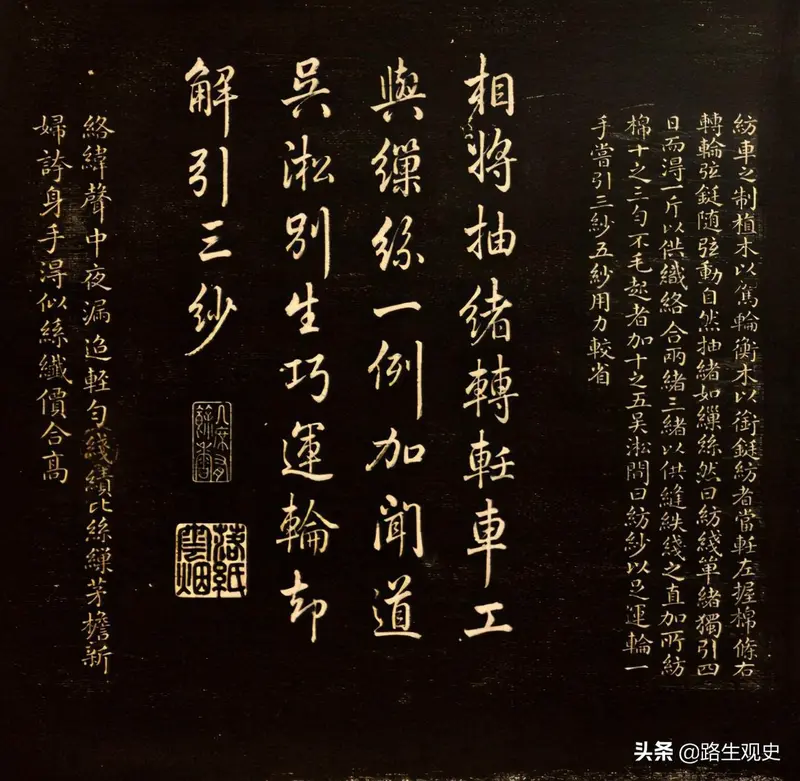 紡車之制植木以駕輪衡木以銜鋌紡者當軠左握棉條右
轉輪弦鋌隨弦動自然抽緒如繅絲然曰紡綫單緒獨引四
日而淂一斤以供織絡合兩緒三緒以供縫紩綫之直加所紡
棉十之三勻不毛起者加十之五吳淞間曰紡紗以足運輪一
手嘗引三紗五紗用力較省
相將抽緒轉軠車工
與繅絲一例加聞道
吳淞別生巧運輪却
解引三紗
落紙
雲烟
絡緯聲中夜漏迢輕勻綫績比絲繅茅檐新
婦誇身手淂似絲纖價合高
头条 @路生观史